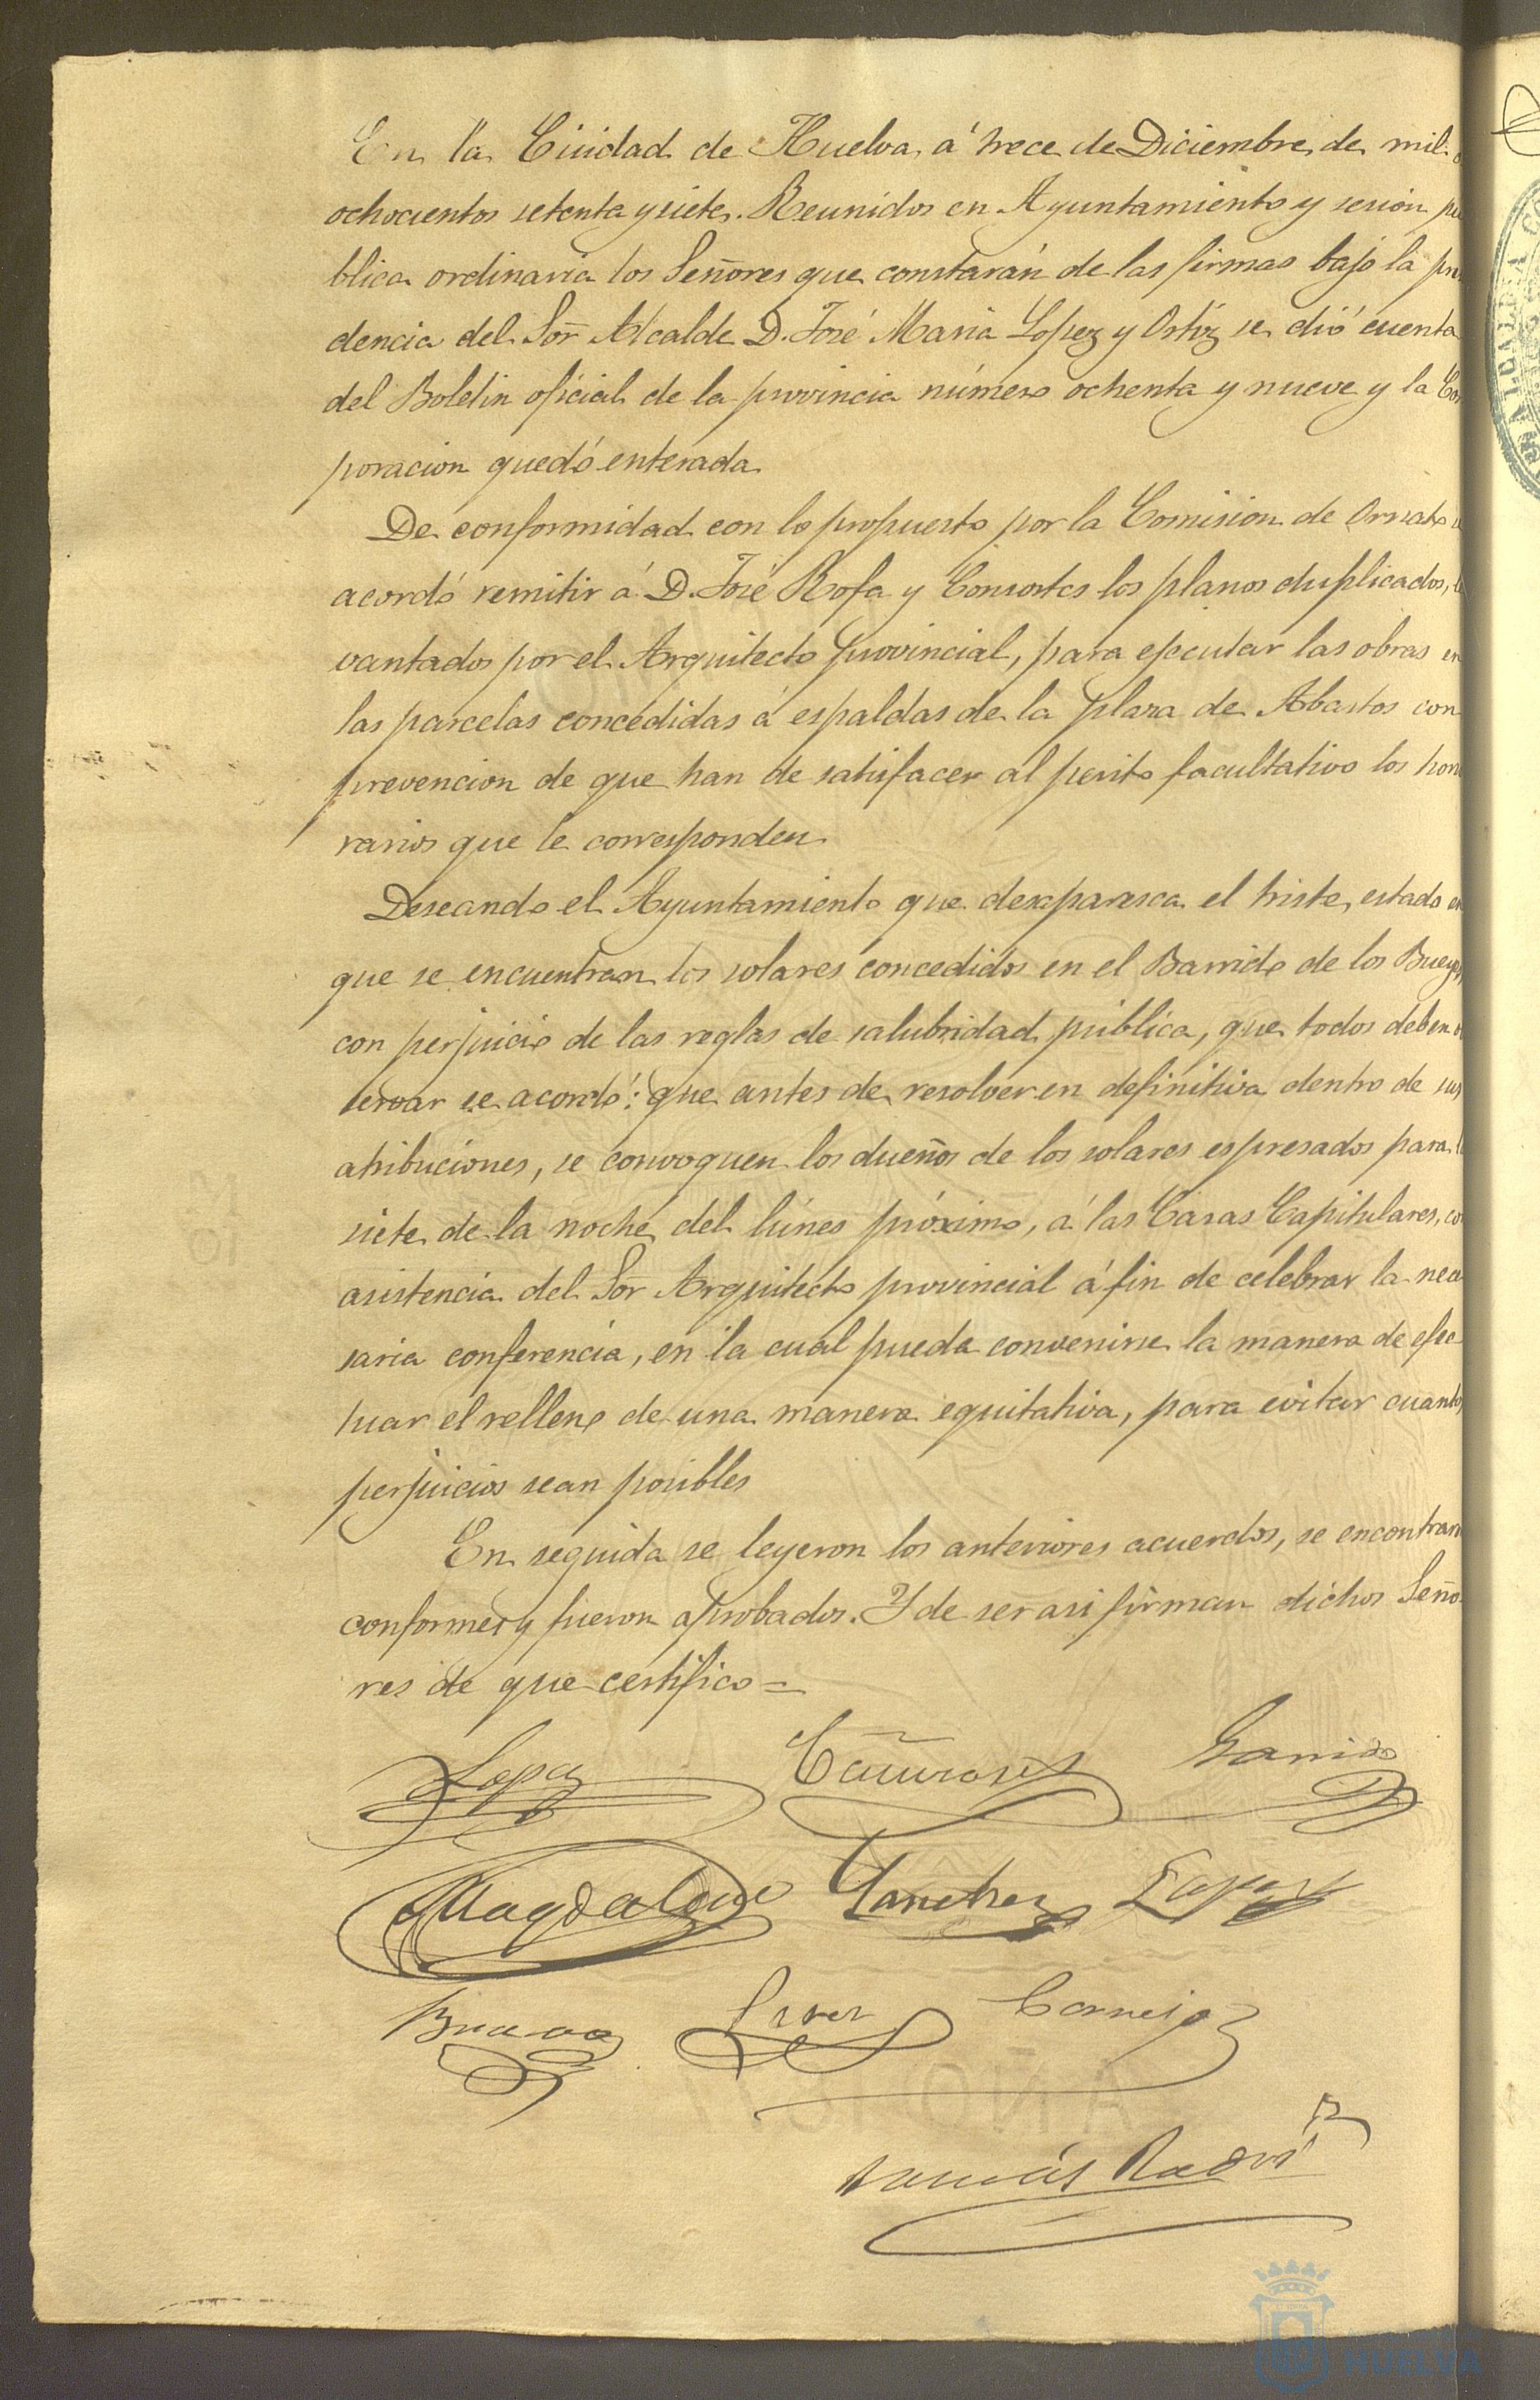 En la Ciudad de Huelva, á trece de Diciembre de mil
ochocientos setenta y siete. Reunidos en Ayuntamiento y sesion pu
blica ordinaria los Señores que constarán de las firmas bajo la pre
dencia del Sor Alcalde D. José Maria Lopez y Ortiz se dió cuenta
del Boletin oficial de la provincia número ochenta y nueve y la Cor
poracion quedó enterada.
De conformidad con lo propuesto por la Comision de Ornato
acordó remitir á D. José Rofa y Consortes los planos duplicados, le
vantados por el Arquitecto provincial, para ejecutar las obras en
las parcelas concedidas á espaldas de la plaza de Abastos con
prevencion de que han de satisfacer al perito facultativo los hono
rarios que le corresponden.
Deseando el Ayuntamiento que desaparezca el triste estado en
que se encuentran los solares concedidos en el Barrido de los Bueyes,
con perjuicio de las reglas de salubridad pública, que todos deben
servar se acordó: que antes de resolver en definitiva dentro de sus
atribuciones, se convoquen los dueños de los solares espresados para
siete de la noche del lúnes próximo, á las Casas Capitulares, co
asistencia del Sor Arquitecto provincial á fin de celebrar la nece
saria conferencia, en la cual pueda convenirse la manera de efec
tuar el relleno de una manera equitativa, para evitar cuantos
perjuicios sean posibles
En seguida se leyeron los anteriores acuerdos, se encontraron
conformes y fueron aprobados. Y de ser asi firman dichos Seño
res de que certifico =
Lopez Garrido
Magdalena Sanchez Lopez
Bravo Cornejo
Tomás Rodri
AÑO 1877
HUELVA